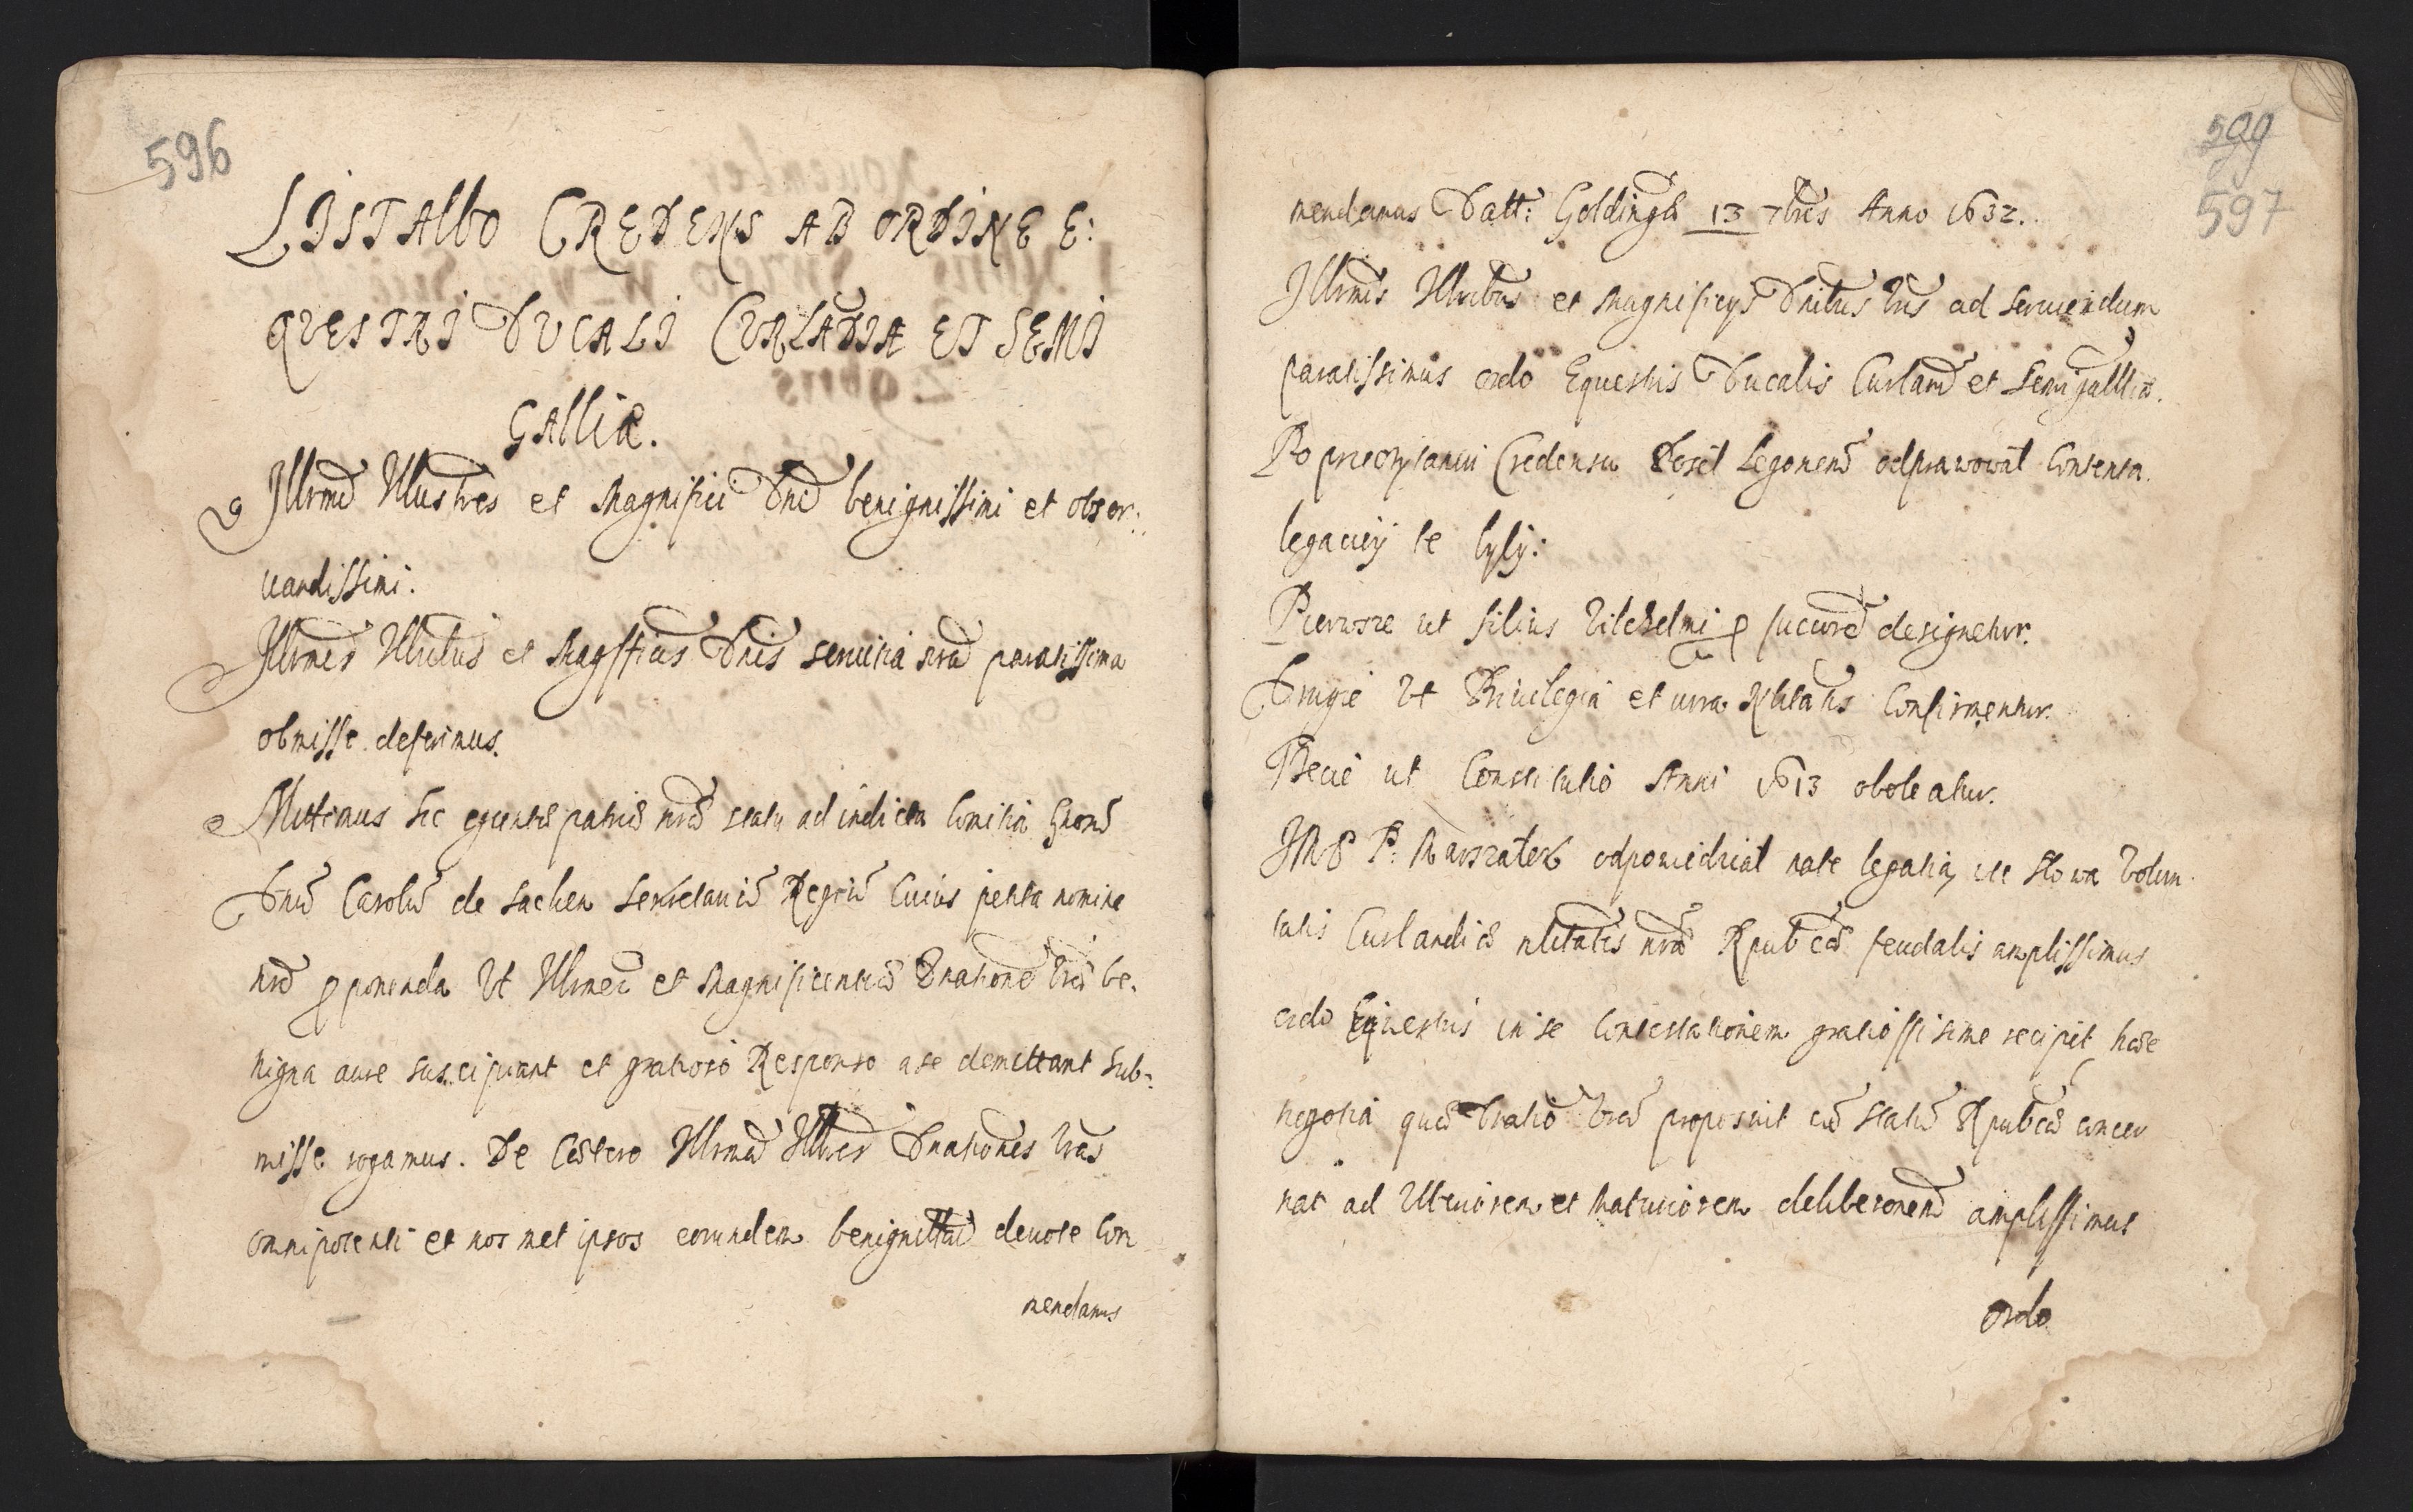 596
LIST Albo CREDENS AB ORDINE E:
QVESTRI DVCALI CVRLADIA ET SEMI
GAlliæ.
Illrmi Illustres et Magnifici Dni benignissimi et obser:
uandissimi.
Illrmis Illribus et Magfficis Dnis seruitia nra paratissima
obmisse deferimus.
Mittimus hic patriæ nræ statu ad indicta Comitia Gnosu
Dnu Carolu de Sacken Secretariu Regiu Cuius petita nomine
nro pponenda Vt Illrmæ et Magnificentiæ Dnatione Vræ be:
nigna aure suscipiant et gratioso Responso a se demittant sub:
misse rogamus. De Cætero Illrmas Illres Dnationes Vras
omnipotenti et nos met ipsos eorundem benignittati deuote Com
mendamus
599
597
mendamus Datt: Goldingæ 13 7bris Anno 1632.
Illrmis Illribus et Magnificys Dnibus Vris ad seruiendum
paratissimus ordo Equestris Ducalis Curland et Semigalliæ.
Po przeczytaniu Credensu Poseł Legonem odprawował Contenta
legaciey te byly:
Pierwsze ut filius Vilchelmi p succore designetur.
Drugie Vt Priuilegia et iura Nlitatis Confirmentur.
Trzecie ut Constitutio Anni 1613 aboleatur.
JMP P: Marszałek odpowiedział na te legatią, w te słowa Volun
tatis Curlandiæ nlitatis nræ Rpubcæ feudalis amplissimus
ordo Equestris in se Contestationem gratiossisime recipit, hæc
negotia quæ Dnatio Vra proposuit cu statu Rpubcæ concer
nat ad Vlteriorem et Maturiorem deliberonem amplissimus
ordo